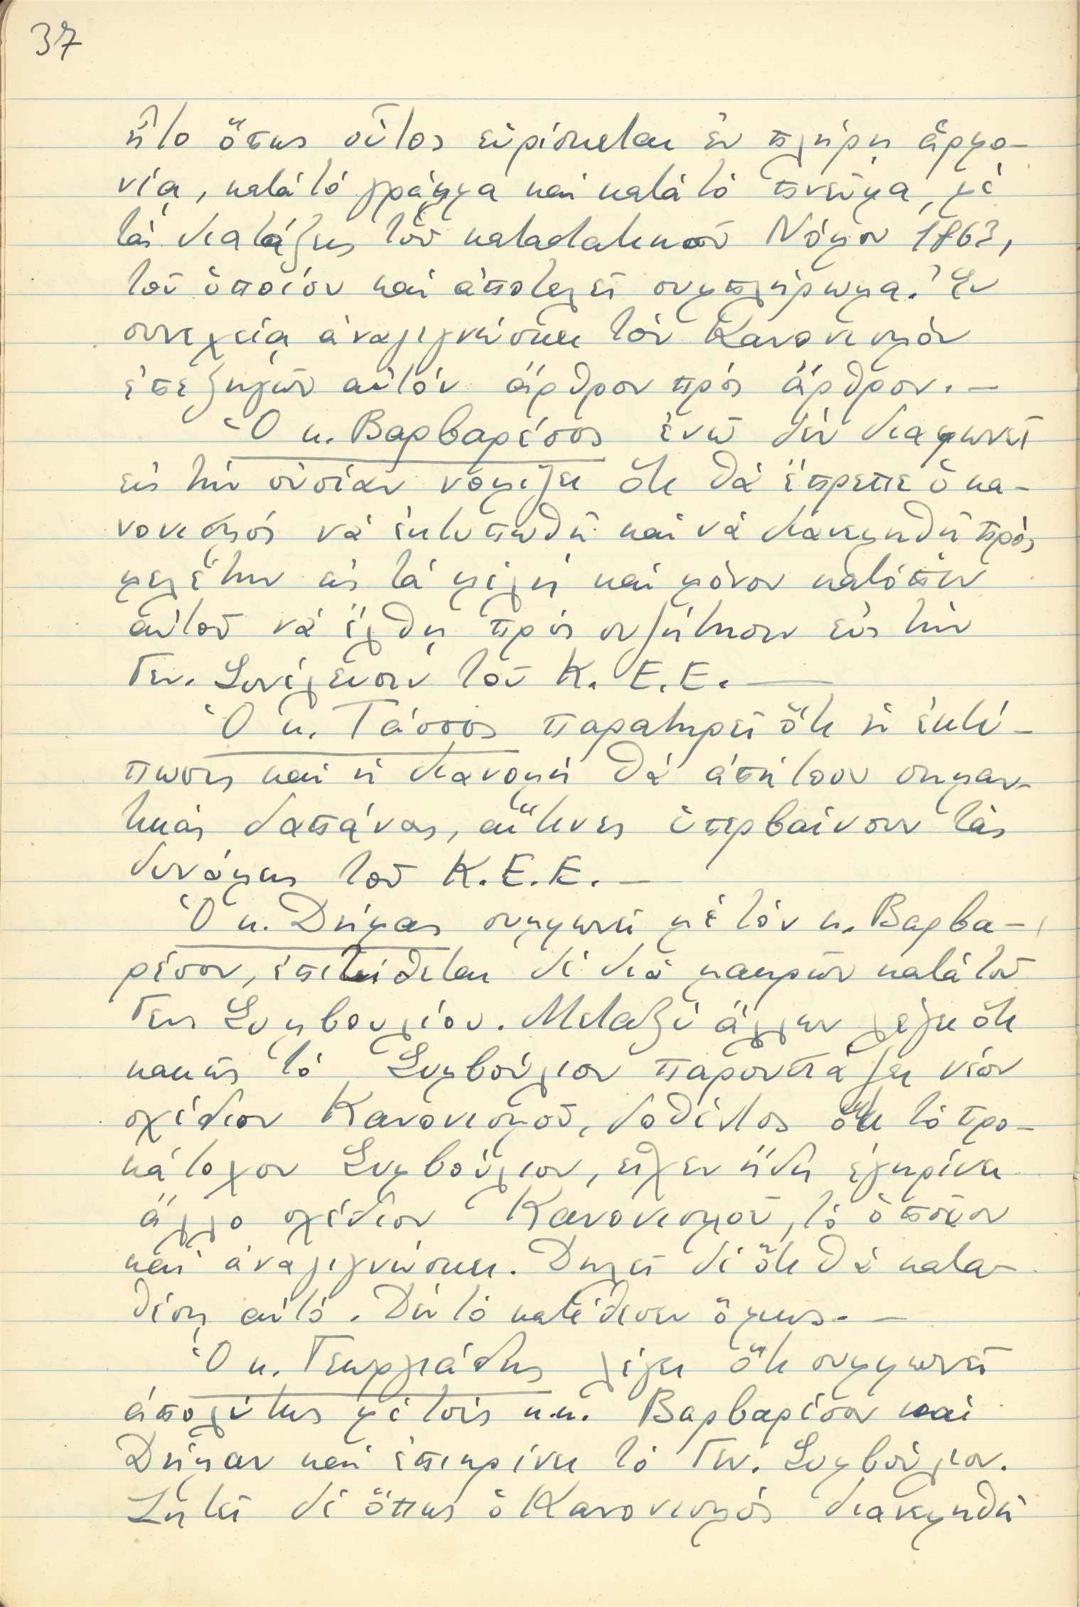 37
ἦτο ὅπως οὗτος εὑρίσκεται ἐν πλήρῃ ἁρμο-
νίᾳ, κατὰ τὸ γράμμα καὶ κατὰ τὸ πνεῦμα, μὲ
τὰς διατάξεις τοῦ καταστατικοῦ Νόμου 1763,
τοῦ ὁποίου καὶ ἀποτελεῖ συμπλήρωμα. Ἐν
συνεχείᾳ ἀναγιγνώσκει τὸν Κανονισμὸν
ἐπεξηγῶν αὐτὸν ἄρθρον πρὸς ἄρθρον. —
Ὁ κ. Βαρβαρέσος ἐνῶ δὲν διαφωνεῖ
εἰς τὴν οὐσίαν νομίζει ὅτι θὰ ἔπρεπε ὁ κα-
νονισμός νὰ ἐκτυπωθῆ καὶ νὰ διανεμηθῆ πρὸς
μελέτην εἰς τὰ μέλη καὶ μόνον κατόπιν
αὐτοῦ νὰ ἔλθῃ πρὸς συζήτησιν εἰς τὴν
Γεν. Συνέλευσιν τοῦ Κ. Ε. Ε. —
Ὁ κ. Τάσσος παρατηρεῖ ὅτι ἡ ἐκτύ-
πωσις καὶ ἡ διανομή θὰ ἀπῄτουν σημαν-
τικὰς δαπάνας, αἵτινες ὑπερβαίνουν τὰς
δυνάμεις τοῦ Κ.Ε.Ε. —
Ὁ κ. Δήμας συμφωνεῖ μὲ τὸν κ. Βαρβα-
ρέσον, ἐπιτίθεται δὲ διὰ μακρῶν κατὰ τοῦ
Γεν Συμβουλίου. Μεταξὺ ἄλλων λέγει ὅτι
κακῶς τὸ Συμβούλιον παρουσιάζει νέον
σχέδιον Κανονισμοῦ, δοθέντος ὅτι τὸ προ-
κάτοχον Συμβούλιον, εἶχεν ἤδη ἐγκρίνει
ἄλλο σχέδιον Κανονισμοῦ, τὸ ὁποῖον
καὶ ἀναγιγνώσκει. Δηλεῖ δὲ ὅτι θὰ κατα-
θέσῃ αὐτό. Δὲν τὸ κατέθεσεν ὅμως. —
Ὁ κ. Γεωργιάδης λέγει ὅτι συμφωνεῖ
ἀπολύτως μὲ τοὺς κ.κ. Βαρβαρέσον καὶ
Δήμαν καὶ ἐπικρίνει τὸ Γεν. Συμβούλιον.
Ζητεῖ δὲ ὅπως ὁ Κανονισμὸς διανεμηθῆ